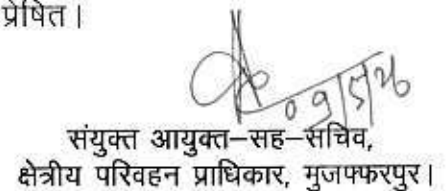 प्रेषित।
संयुक्त आयुक्त–सह–सचिव,
क्षेत्रीय परिवहन प्राधिकार, मुजफ्फरपुर।